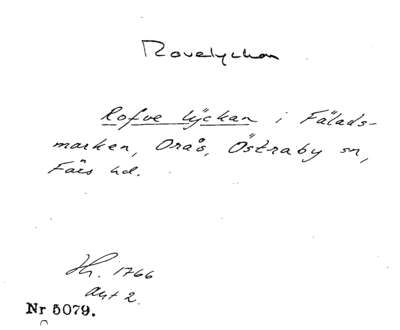 Rovelyckan
Rofve lÿckan i Fälads-
marken, Orås, Östraby sn,
Färs hd.
Hh. 1766
Akt 2.
Nr 5079.